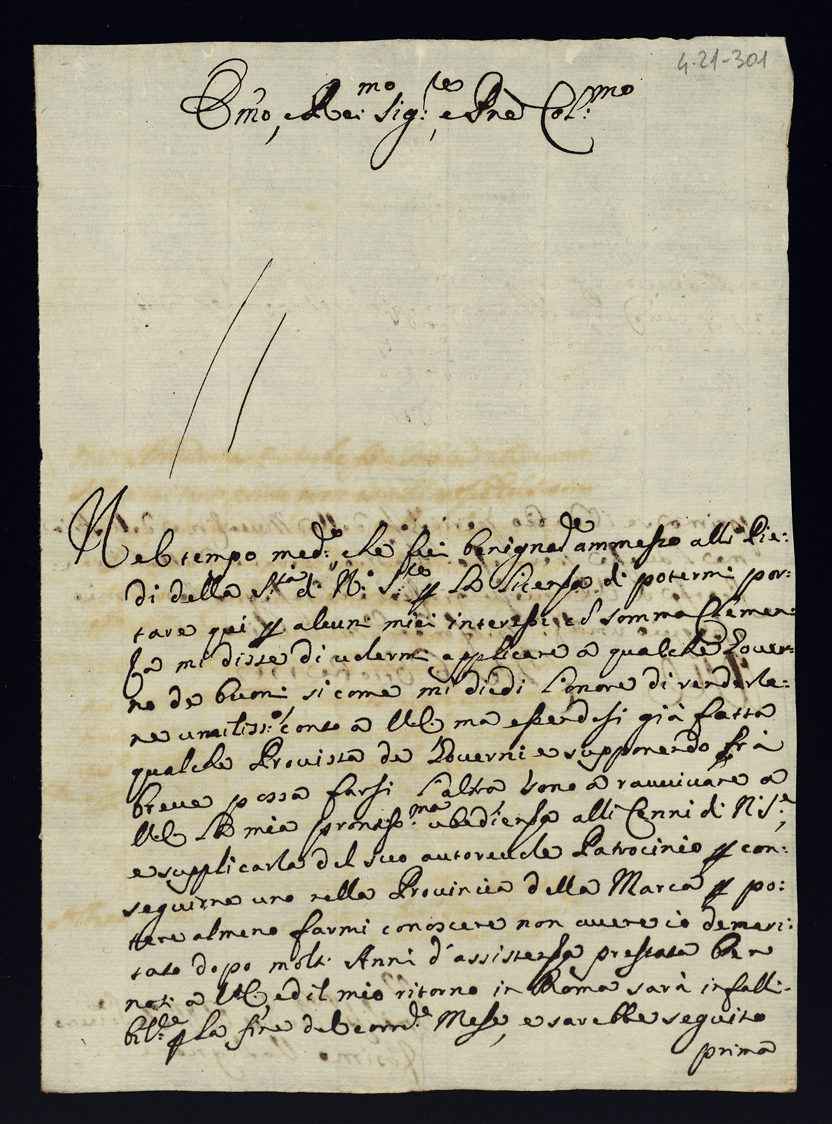 4-21-301
Em̃o, e Re: mo Sig: re, e Pn̄e Col: mo
Nel tempo med: o che fui benigna: te ammesso alli Pie:
di della S: tà di N: o S: re per la licenza di potermi por:
tare qui per alcuni miei interessi, con somma Clemen:
za mi disse di volermi applicare a qualche Gover:
no de buoni si come mi diedi l'onore di renderle:
ne umiliss: o conto a VE ma essendosi già fatta
qualche Provista de Governi e supponendo frà
breve possa farsi l'altra sono a ravvivare a
VE la mia prontiss: ma ubedienza alli Cenni di N: S: re,
e supplicarla del suo autorevole Patrocinio per con:
seguirne uno nella Provincia della Marca per po:
tere almeno farmi conoscere non avere io demeri:
tato dopo molti Anni d'assistenza prestata ben
noti a VE, ed il mio ritorno in Roma sarà infalli:
bil: te per la fine del corr: te Mese, e sarebbe seguito
prima